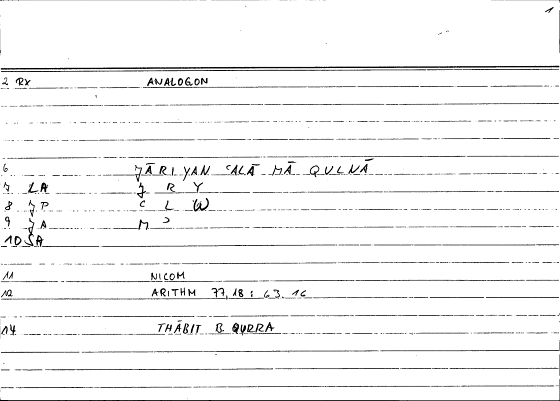 1
2 RX ANALOGON
6 ǦĀRIYAN ʿALĀ MĀ QULNĀ
7 LA Ǧ R Y
8 ǦP ʿ L W
9 ǦA M ʾ
10 SA
11 NICOM
12 ARITHM 77,18 : 63.16
14 THĀBIT B QURRA